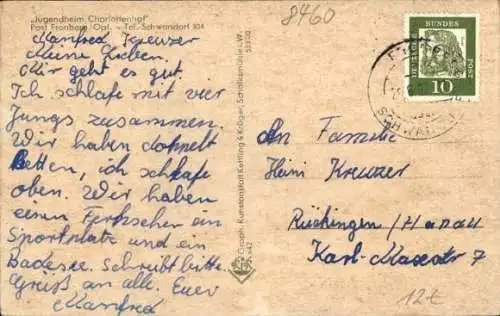 8460
„Jugendheim Charlottenhof"
Post Fronberg/Opf. - Tel. Schwandorf 804
Manfred Kreuzer
Meine Lieben.
Mir geht es gut.
Ich schlafe mit vier
Jungs zusammen.
Wir haben doppelt
Betten, ich schlafe
oben. Wir haben
einen Fernseher ein
Sportplatz und ein
Badesee. Schreibt bitte.
Gruß an alle. Euer
Manfred
Graph. Kunstanstalt Kettling & Krüger, Schalksmühle i. W.
DEUTSCHE BUNDESPOST
10
SCHWAN
An Familie
Heini Kreuzer
Rückingen / Hanau
Karl-Marxstr 7
12€